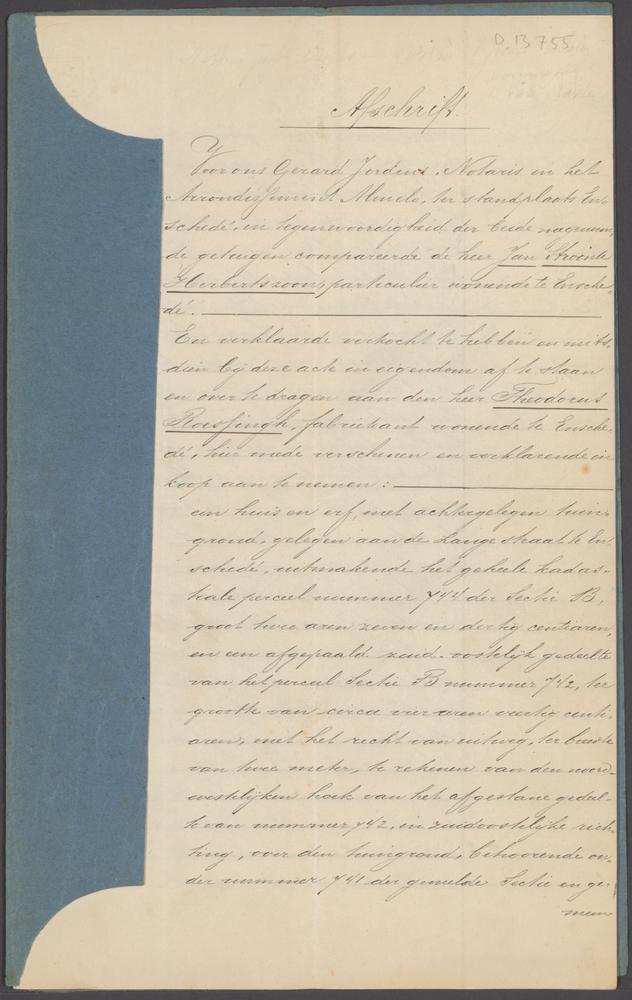 D. 13755
Afschrift.
Voor ons Gerard Jordens, Notaris in het
Arrondissement Almelo, ter standplaats En-
schedé, in tegenwoordigheid der beide nagenoem-
de getuigen compareerde de heer Jan Stroink
Herbertszoon, particulier wonende te Ensche-
dé.
En verklaarde verkocht te hebben en mits-
dien bij deze acte in eigendom af te staan
en over te dragen aan den heer Theodorus
Roessingh, fabriekant wonende te Ensche-
dé, hier mede verschenen en verklarende in
koop aan te nemen:
een huis en erf, met achtergelegen tuin-
grond, gelegen aan de Langestraat te En-
schedé, uitmakende het geheele kadas-
trale perceel nummer 744 der Sectie B,
groot twee aren zeven en dertig centiaren,
en een afgepaald zuid-oostelijk gedeelte
van het perceel Sectie B nummer 742, ter
grootte van circa vier aren veertig centi-
aren, met het recht van uitweg, ter breedte
van twee meter, te rekenen van den noord-
westelijken hoek van het afgestane gedeel-
te van nummer 742, in zuidoostelijke rich-
ting, over den tuingrond, behoorende on-
der nummer 741 der gemelde Sectie en ge-
meen